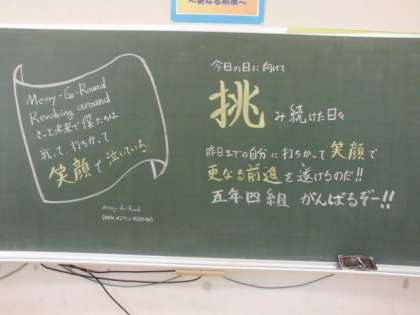 〜更なる前進〜
Merry-Go-Round
Revolving around
きっと未来で僕たちは
戦って打ちかって
笑顔で泣いている
Merry-Go-Round
今日の日に向けて
挑み続けた日々
昨日までの自分に打ちかって笑顔で
更なる前進を遂げるのだ!!
五年四組 がんばるぞー!!